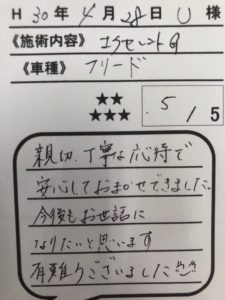 H 30年 4月 28日 U 様
《施術内容》エクセレントG
《車種》フリード
★★
★★★
5 / 5
親切、丁寧な応待で
安心しておまかせできました。
今後もお世話に
なりたいと思います
有難うございました